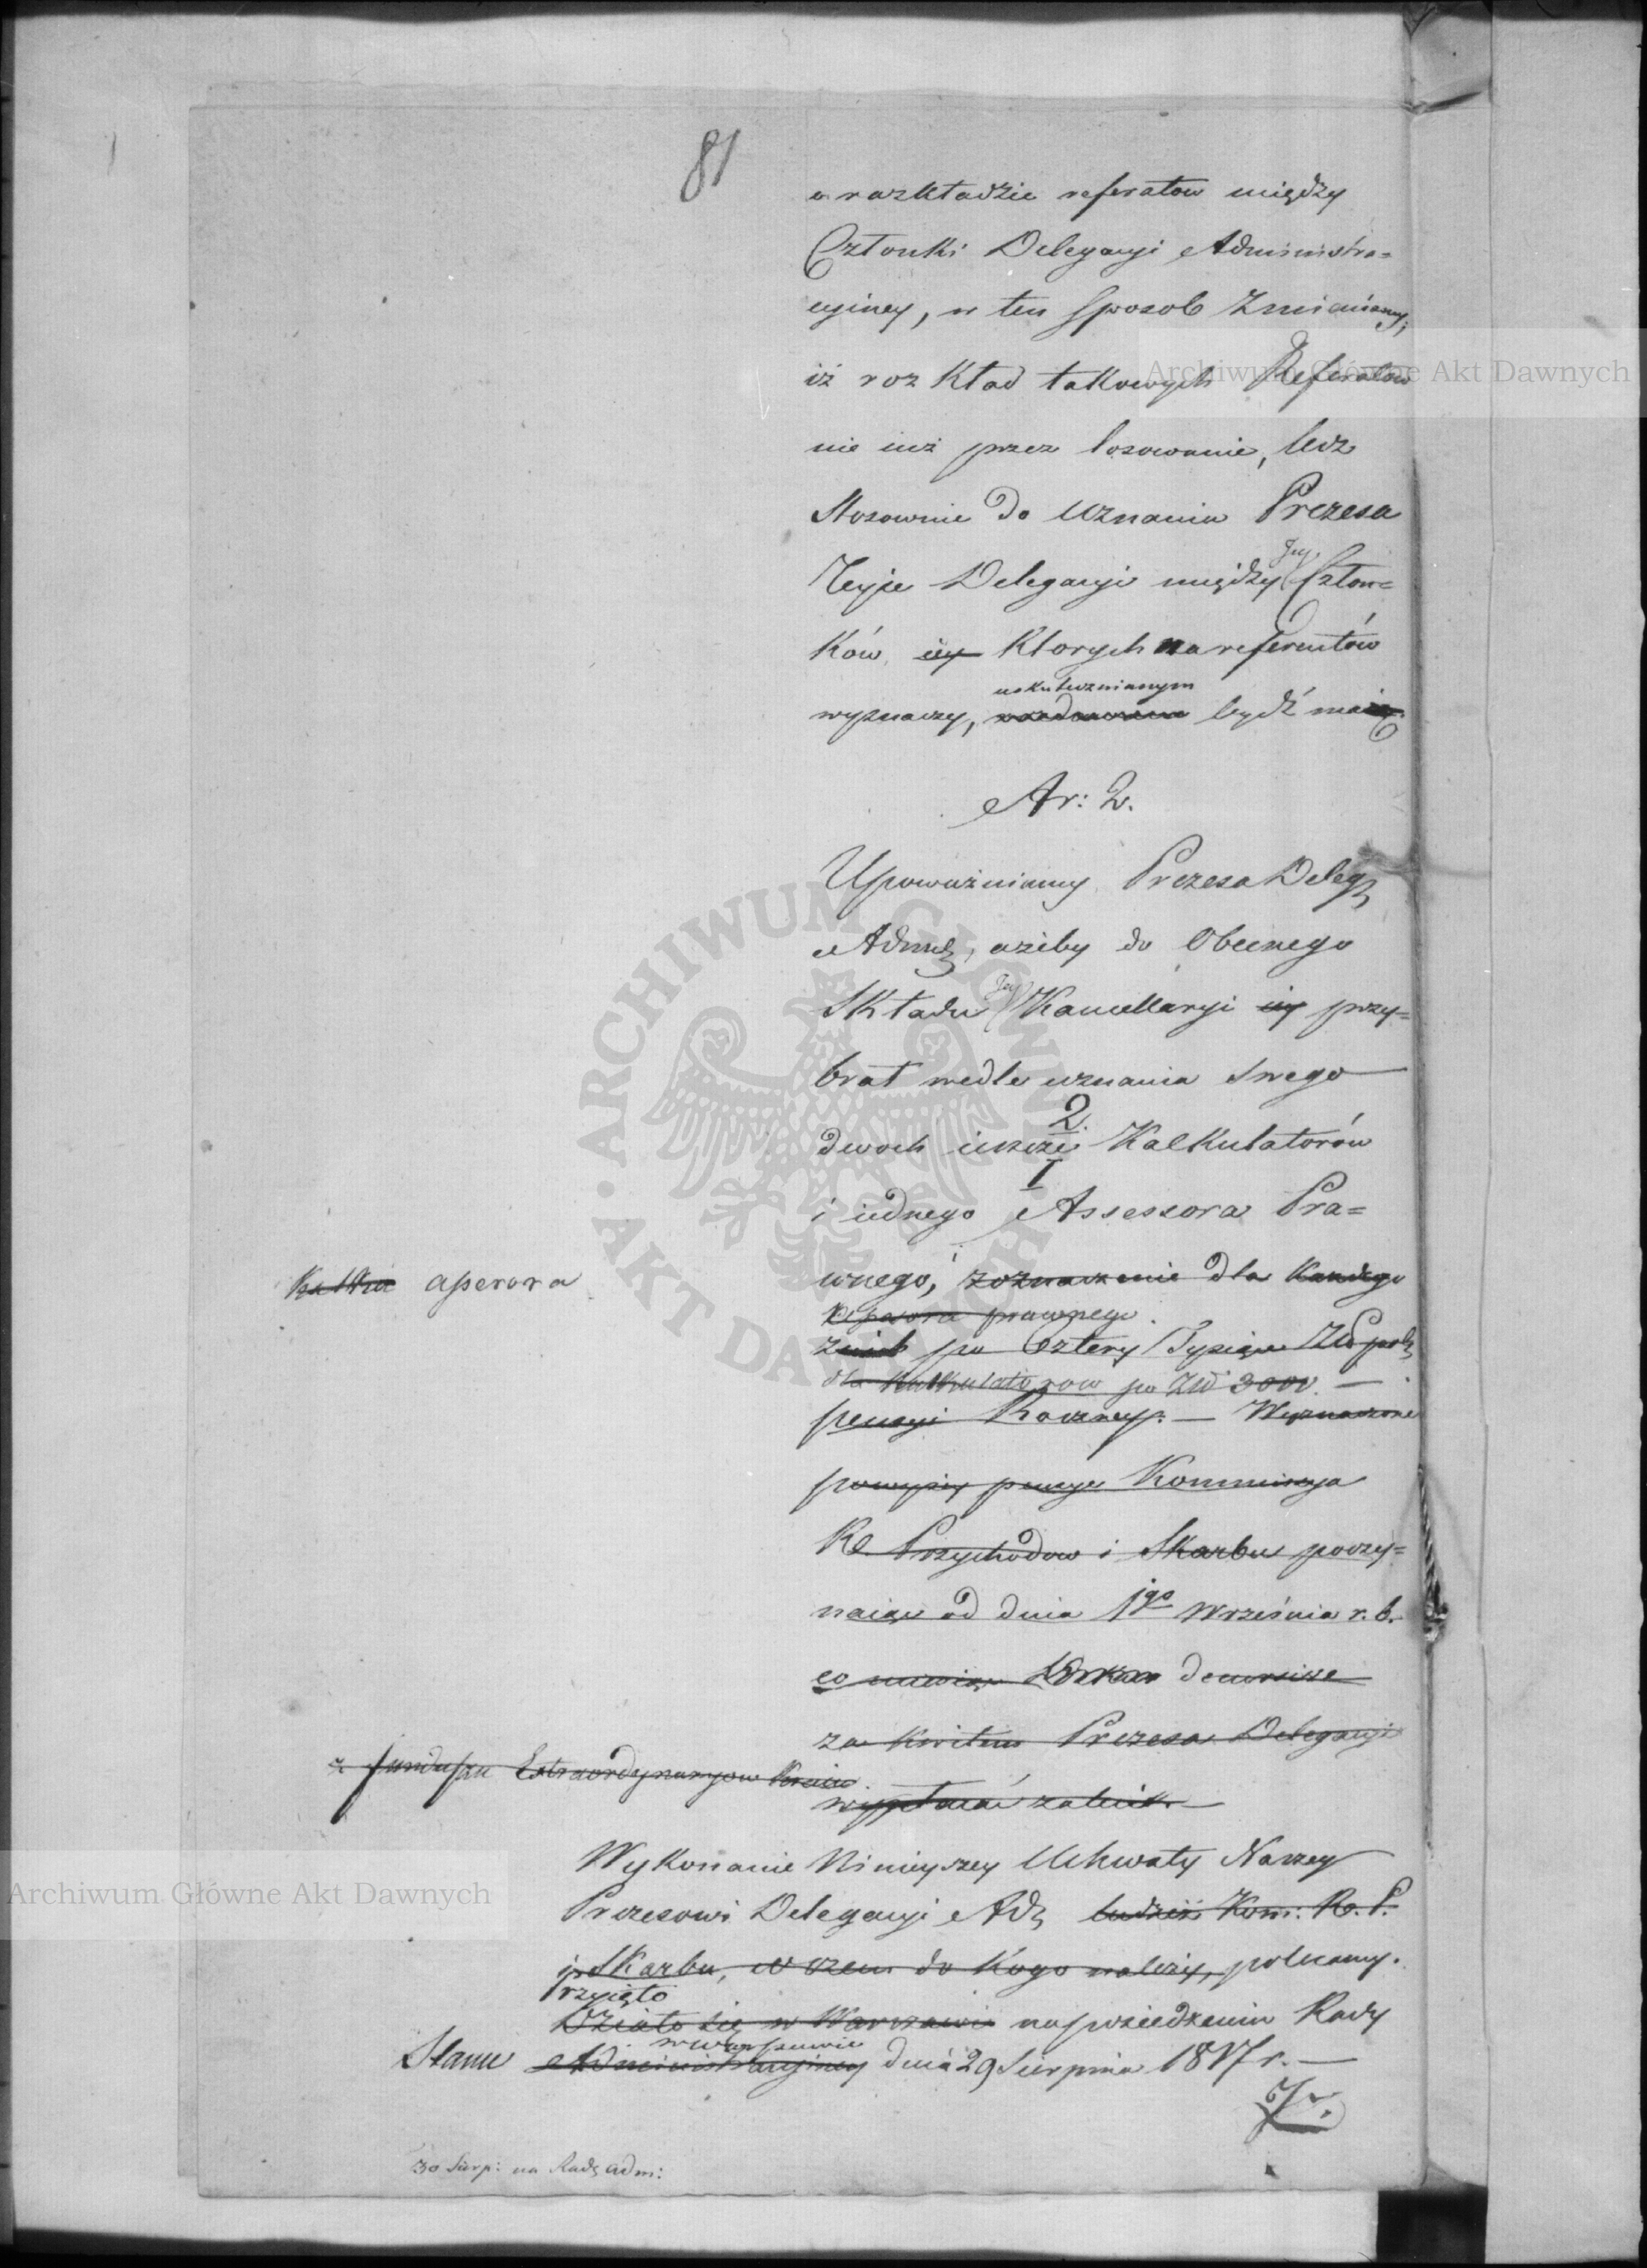 81
o rozkładzie referatow między
Członki Delegacyi Administra=
cyiney, w ten sposob zmieniamy,
iż rozkład takowych Referatow
nie iuż przez losowanie, lecz
stosownie do uznania Prezesa
Teyże Delegacyi między Jey Człon=
ków, iey ktorych na referentów
uskutecznianym
wyznaczy, bydź
Ar: 2.
Upoważniamy Prezesa Deleg
Adm, ażeby do Obecnego
Składu Jey Kancellaryi iey przy=
brał wedle uznania swego
2.
dwoch ieszcze Kalkulatorów
1
i iednego Assessora Pra=
wnego, dla każdego
assessora
prawnego
po Cztery Tysiące Złp
dla Kalkulatorow po Złt 3000. —
pensyi Roczney. — Wyznaczone
powyżey pensye Kommissya
R. Przychodow i Skarbu poczy=
naiąc od dnia 1go Września r. b.
co miesiąc
za kwitem Prezesa Delegacyi
z funduszu Extraordynaryow
wypłacać zaleci. —
Wykonanie Ninieyszey Uchwały Naszey
Prezesowi Delegacyi Ad tudzież Kom: R. P.
i Skarbu, w czem do kogo należy, polecamy.
Przyięto
Działo się w Warszawie na posiedzeniu Rady
w Warszawie
Stanu Administracyiney dnia 29 Sierpnia 1817 r. —
30 Sierp: na Radę Adm:
Archiwum Główne Akt Dawnych
Archiwum Główne Akt Dawnych
ARCHIWUM GŁÓWNE AKT DAWNYCH